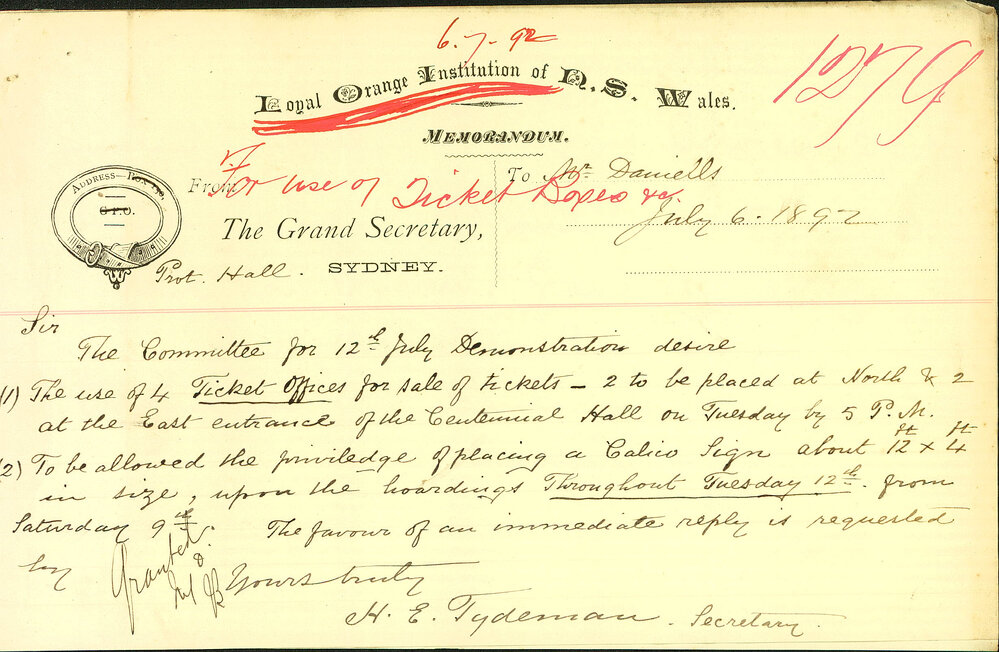 6.7.92
1279
Loyal Orange Institution of N.S. Wales.
MEMORANDUM.
ADDRESS—BOX 190,
G.P.O.
From
For use of Ticket Boxes &c.
The Grand Secretary,
Prot. Hall. SYDNEY.
To Mr. Daniells
July 6. 1892
Sir
The Committee for 12th July Demonstration desire
(1) The use of 4 Ticket Offices for sale of tickets – 2 to be placed at North & 2
at the East entrance of the Centennial Hall on Tuesday by 5 P.M.
(2) To be allowed the priviledge of placing a Calico Sign about 12 ft x 4 ft
in size, upon the hoardings Throughout Tuesday 12th. from
Saturday 9th. The favour of an immediate reply is requested
by
Granted
Yours truly
H. E. Tydeman. Secretary.